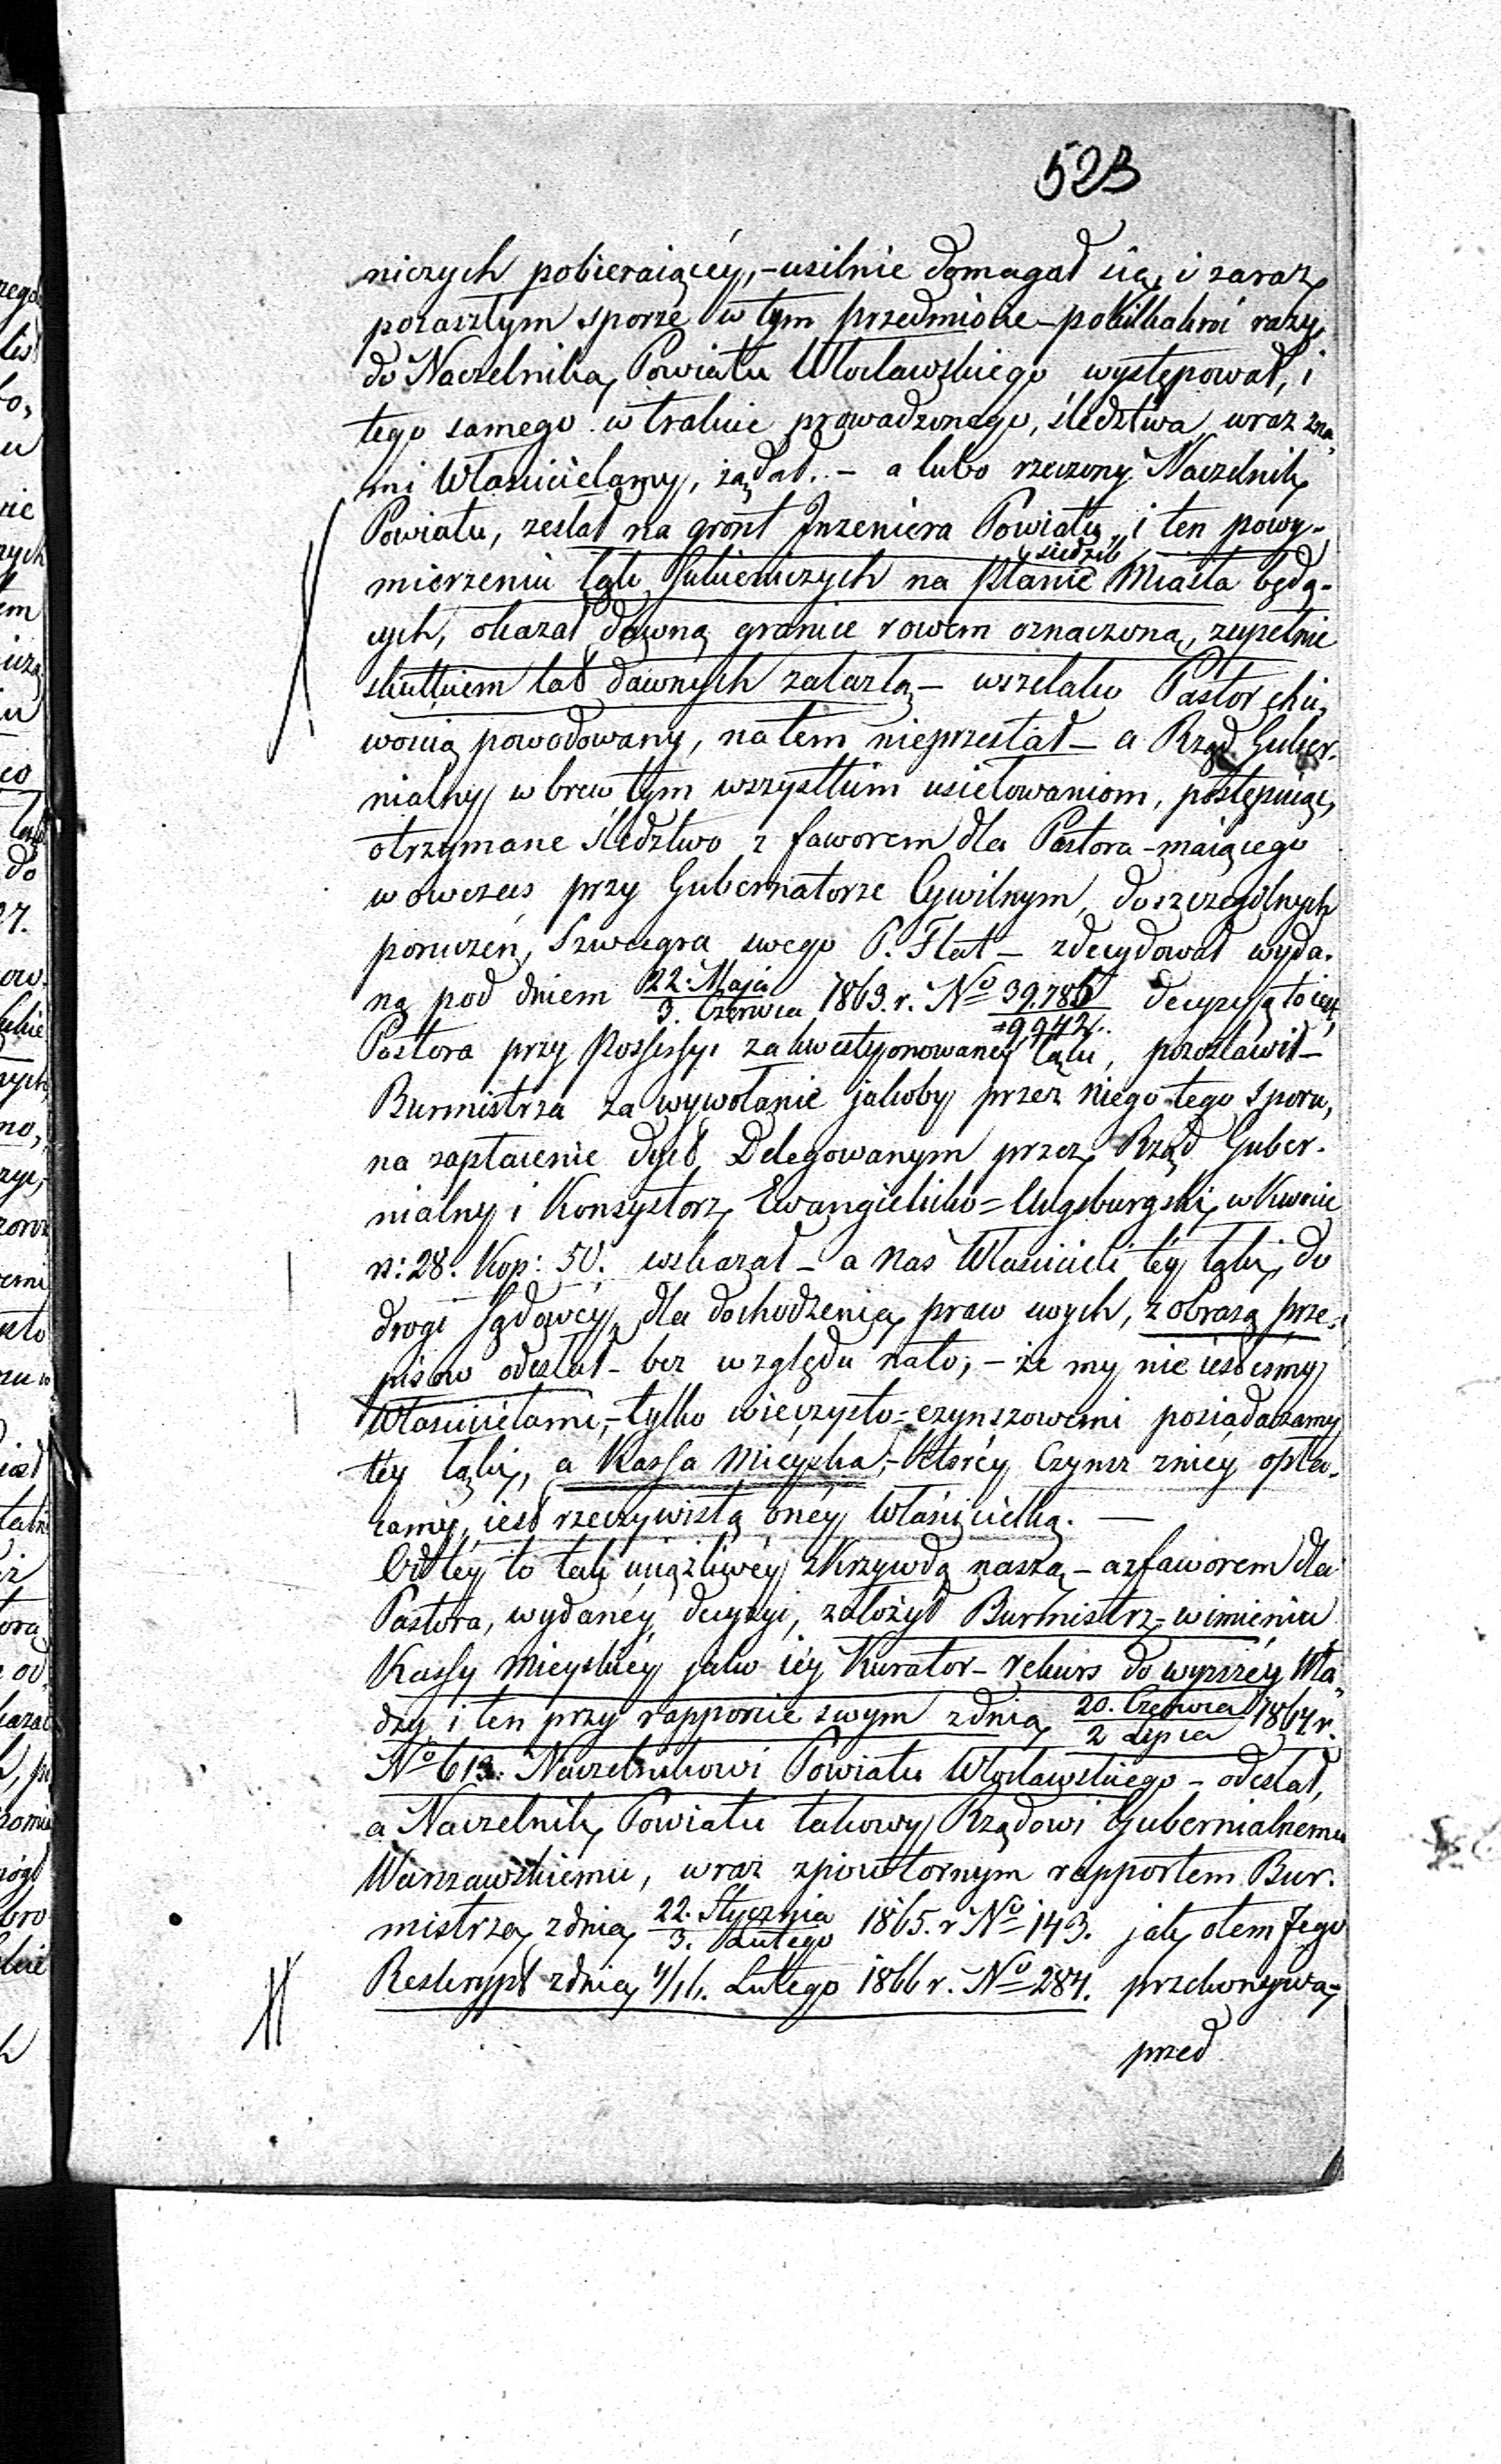 523
niczych pobieraiącéy, - usilnie domagał się, i zaraz
pozaszłym sporze w tym przedmiocie - pokilkakroć razy
do Naczelnika Powiatu Włocławskiego występował, i
tego samego w trakcie prowadzonego, śledztwa wraz zna„
mi Właścicielamy, żądał. - a lubo rzeczony Naczelnik
Powiatu, zesłał na gront Inżeniera Powiatu, i ten powy-
siedzib
mierzeniu łąk Sukieniczych na planie Miasta będą-
cych, okazał dawną granice rowem oznaczoną, zupełnie
skutkiem lat dawnych zatartą - wszelako Pastor chci„
wością powodowany, natem nieprzestał - a Rząd Guber-
nialny wbrew tym wszystkim usiełowaniom, postępuiąc,
otrzymane śledztwo z faworem dla Pastora - maiącego
wówczas przy Gubernatorze Cywilnym, doszczególnych
poruczeń, Szwagra swego P. Flat - zdecydował wyda-
ną pod dniem 22. Maja / 3. Czerwca 1863. r. No 39,785 / 9942. decyzyą to iest,
Pastora przy Possessyi zakwestyonowanéy łąki, pozostawił -
Burmistrza za wywołanie jakoby przez niego tego sporu,
na zapłacenie dyet Delegowanym przez Rząd Guber-
nialny i Konsystorz Ewangielicko = Augsburgski, w Kwocie
r: 28. Kop: 50. wskazał - a nas Właścicieli téy łąki, do
drogi sądowéy, dla dochodzenia praw swych, z obrazą prze-
pisów odesłał - bez względu nato, - że my nie iesteśmy
Właścicielami, - tylko wieczysto = czynszowemi posiadaczamy
téy łąki, a Kassa Mieyska, - któréy Czynsz zniéy opła-
camy, iest rzeczywistą onéy Właścicielką. -
Od téy to tak uciążliwéy zKrzywdą naszą - a zfaworem dla
Pastora, wydanéy decyzyi, założył Burmistrz = w imieniu
Kassy Mieyskiéy jako iéy Kurator - rekurs do wyższéy Wła„
dzy i ten przy rapporcie swym zdnia 20. Czerwca / 2 Lipca 1864 r.
No 613. Naczelnikowi Powiatu Włocławskiego - odesłał,
a Naczelnik Powiatu takowy Rządowi Gubernialnemu
Warszawskiemu, wraz zpowtórnym rapportem Bur-
mistrza zdnia 22. Stycznia / 3. Lutego 1865. r No 143. jak otem Jego
Reskrypt zdnia 4/16. Lutego 1866 r. No 284. przekonywa, -
przed